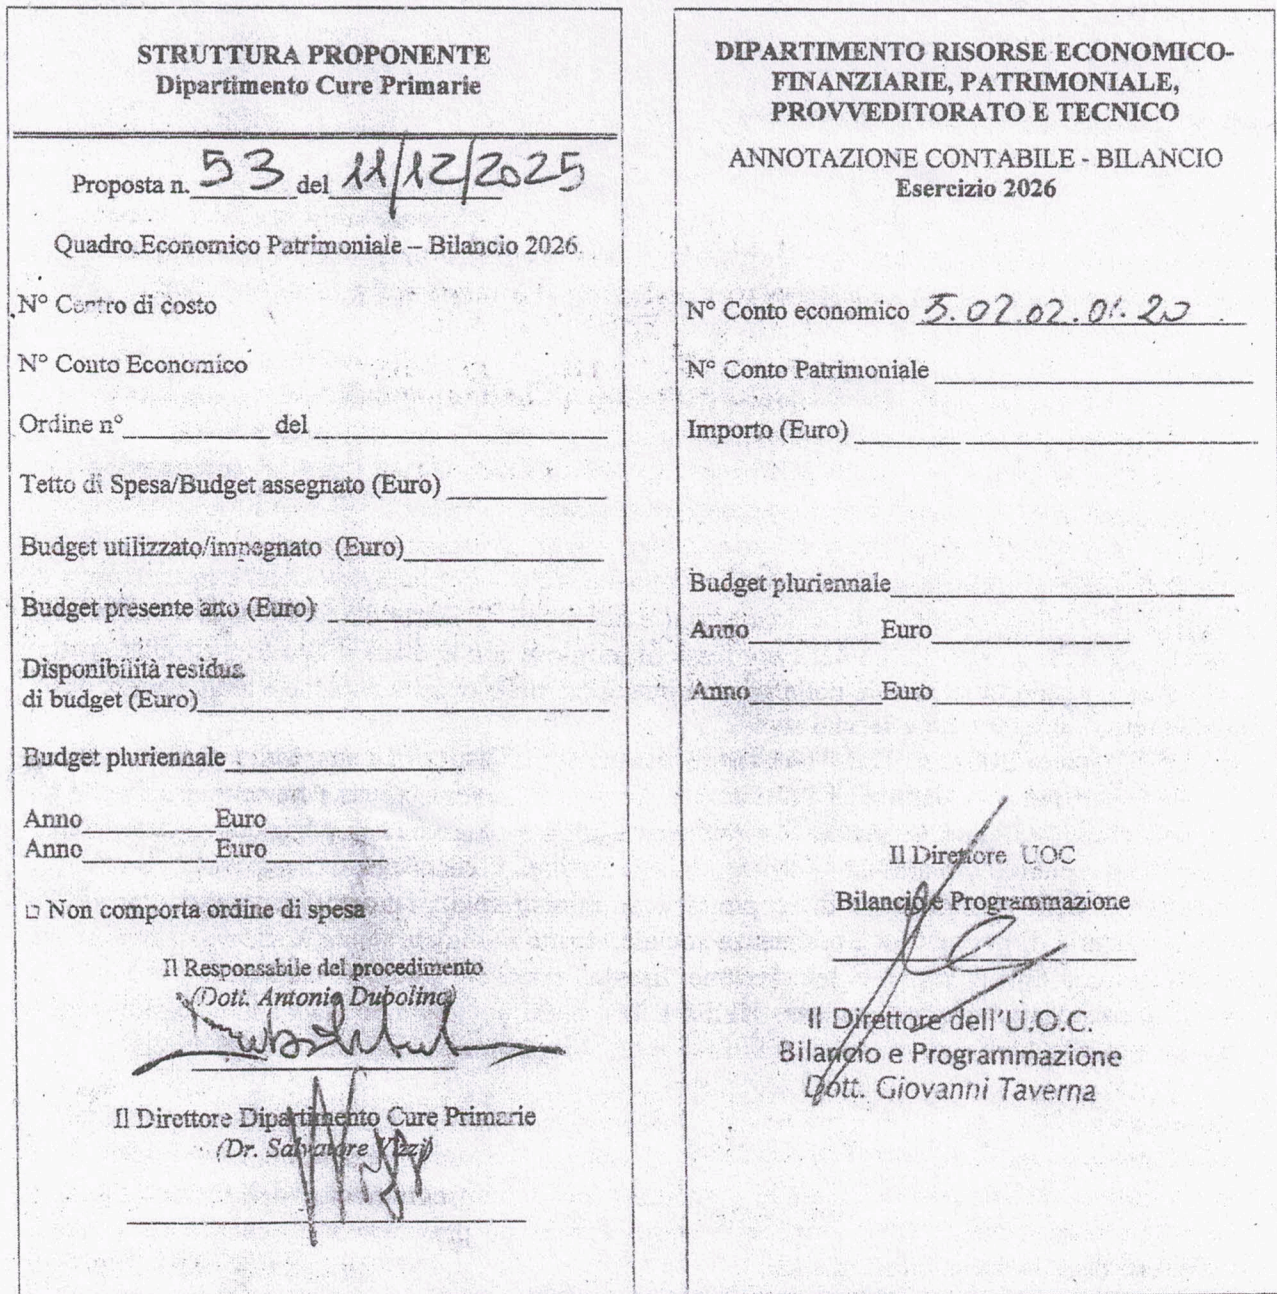 STRUTTURA PROPONENTE
Dipartimento Cure Primarie
Proposta n. 53 del 11/12/2025
Quadro Economico Patrimoniale – Bilancio 2026
N° Centro di costo
N° Conto Economico
Ordine n° del
Tetto di Spesa/Budget assegnato (Euro)
Budget utilizzato/impegnato (Euro)
Budget presente atto (Euro)
Disponibilità residua
di budget (Euro)
Budget pluriennale
Anno Euro
Anno Euro
□ Non comporta ordine di spesa
Il Responsabile del procedimento
(Dott. Antonio Dubolino)
Il Direttore Dipartimento Cure Primarie
(Dr. Salvatore Vizzi)
DIPARTIMENTO RISORSE ECONOMICO-
FINANZIARIE, PATRIMONIALE,
PROVVEDITORATO E TECNICO
ANNOTAZIONE CONTABILE - BILANCIO
Esercizio 2026
N° Conto economico 5.02.02.01.20
N° Conto Patrimoniale
Importo (Euro)
Budget pluriennale
Anno Euro
Anno Euro
Il Direttore UOC
Bilancio e Programmazione
Il Direttore dell'U.O.C.
Bilancio e Programmazione
Dott. Giovanni Taverna